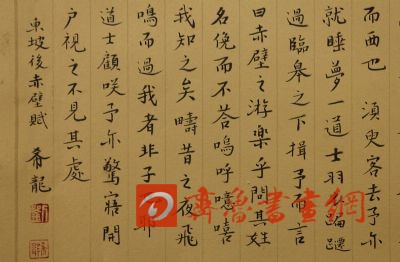 而西也 須臾客去予亦
就睡夢一道士羽衣蹁躚
過臨皋之下揖予而言
曰赤壁之游樂乎問其姓
名俛而不荅嗚呼噫嘻
我知之矣疇昔之夜飛
鳴而過我者非子耶
道士顧咲予亦驚寤開
户視之不見其處
東坡後赤壁賦 希龍
齊魯書畫網